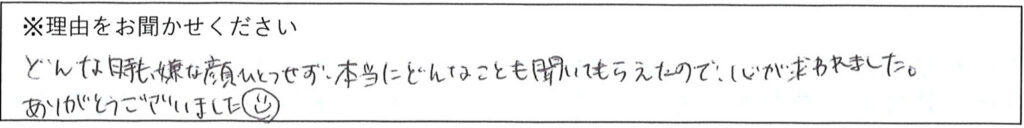 ※理由をお聞かせください
どんな時も、嫌な顔ひとつせず、本当にどんなことも聞いてもらえたので、心が求われました。
ありがとうございました☺